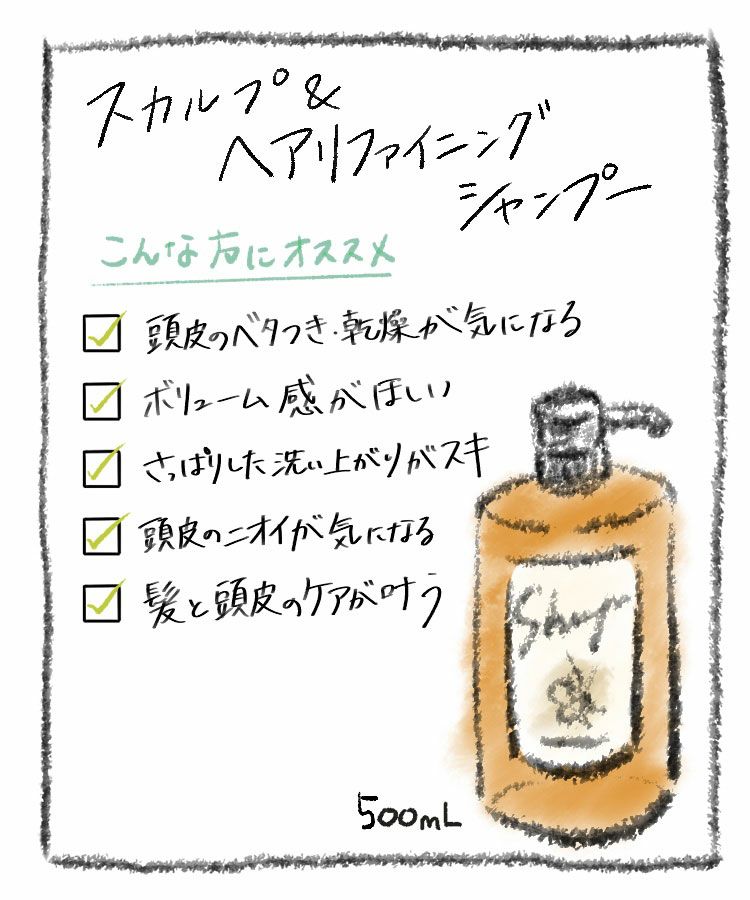 スカルプ&
ヘアリファイニング
シャンプー
こんな方にオススメ
頭皮のベタつき・乾燥が気になる
ボリューム感がほしい
さっぱりした洗い上がりがスキ
頭皮のニオイが気になる
髪と頭皮のケアが叶う
500mL